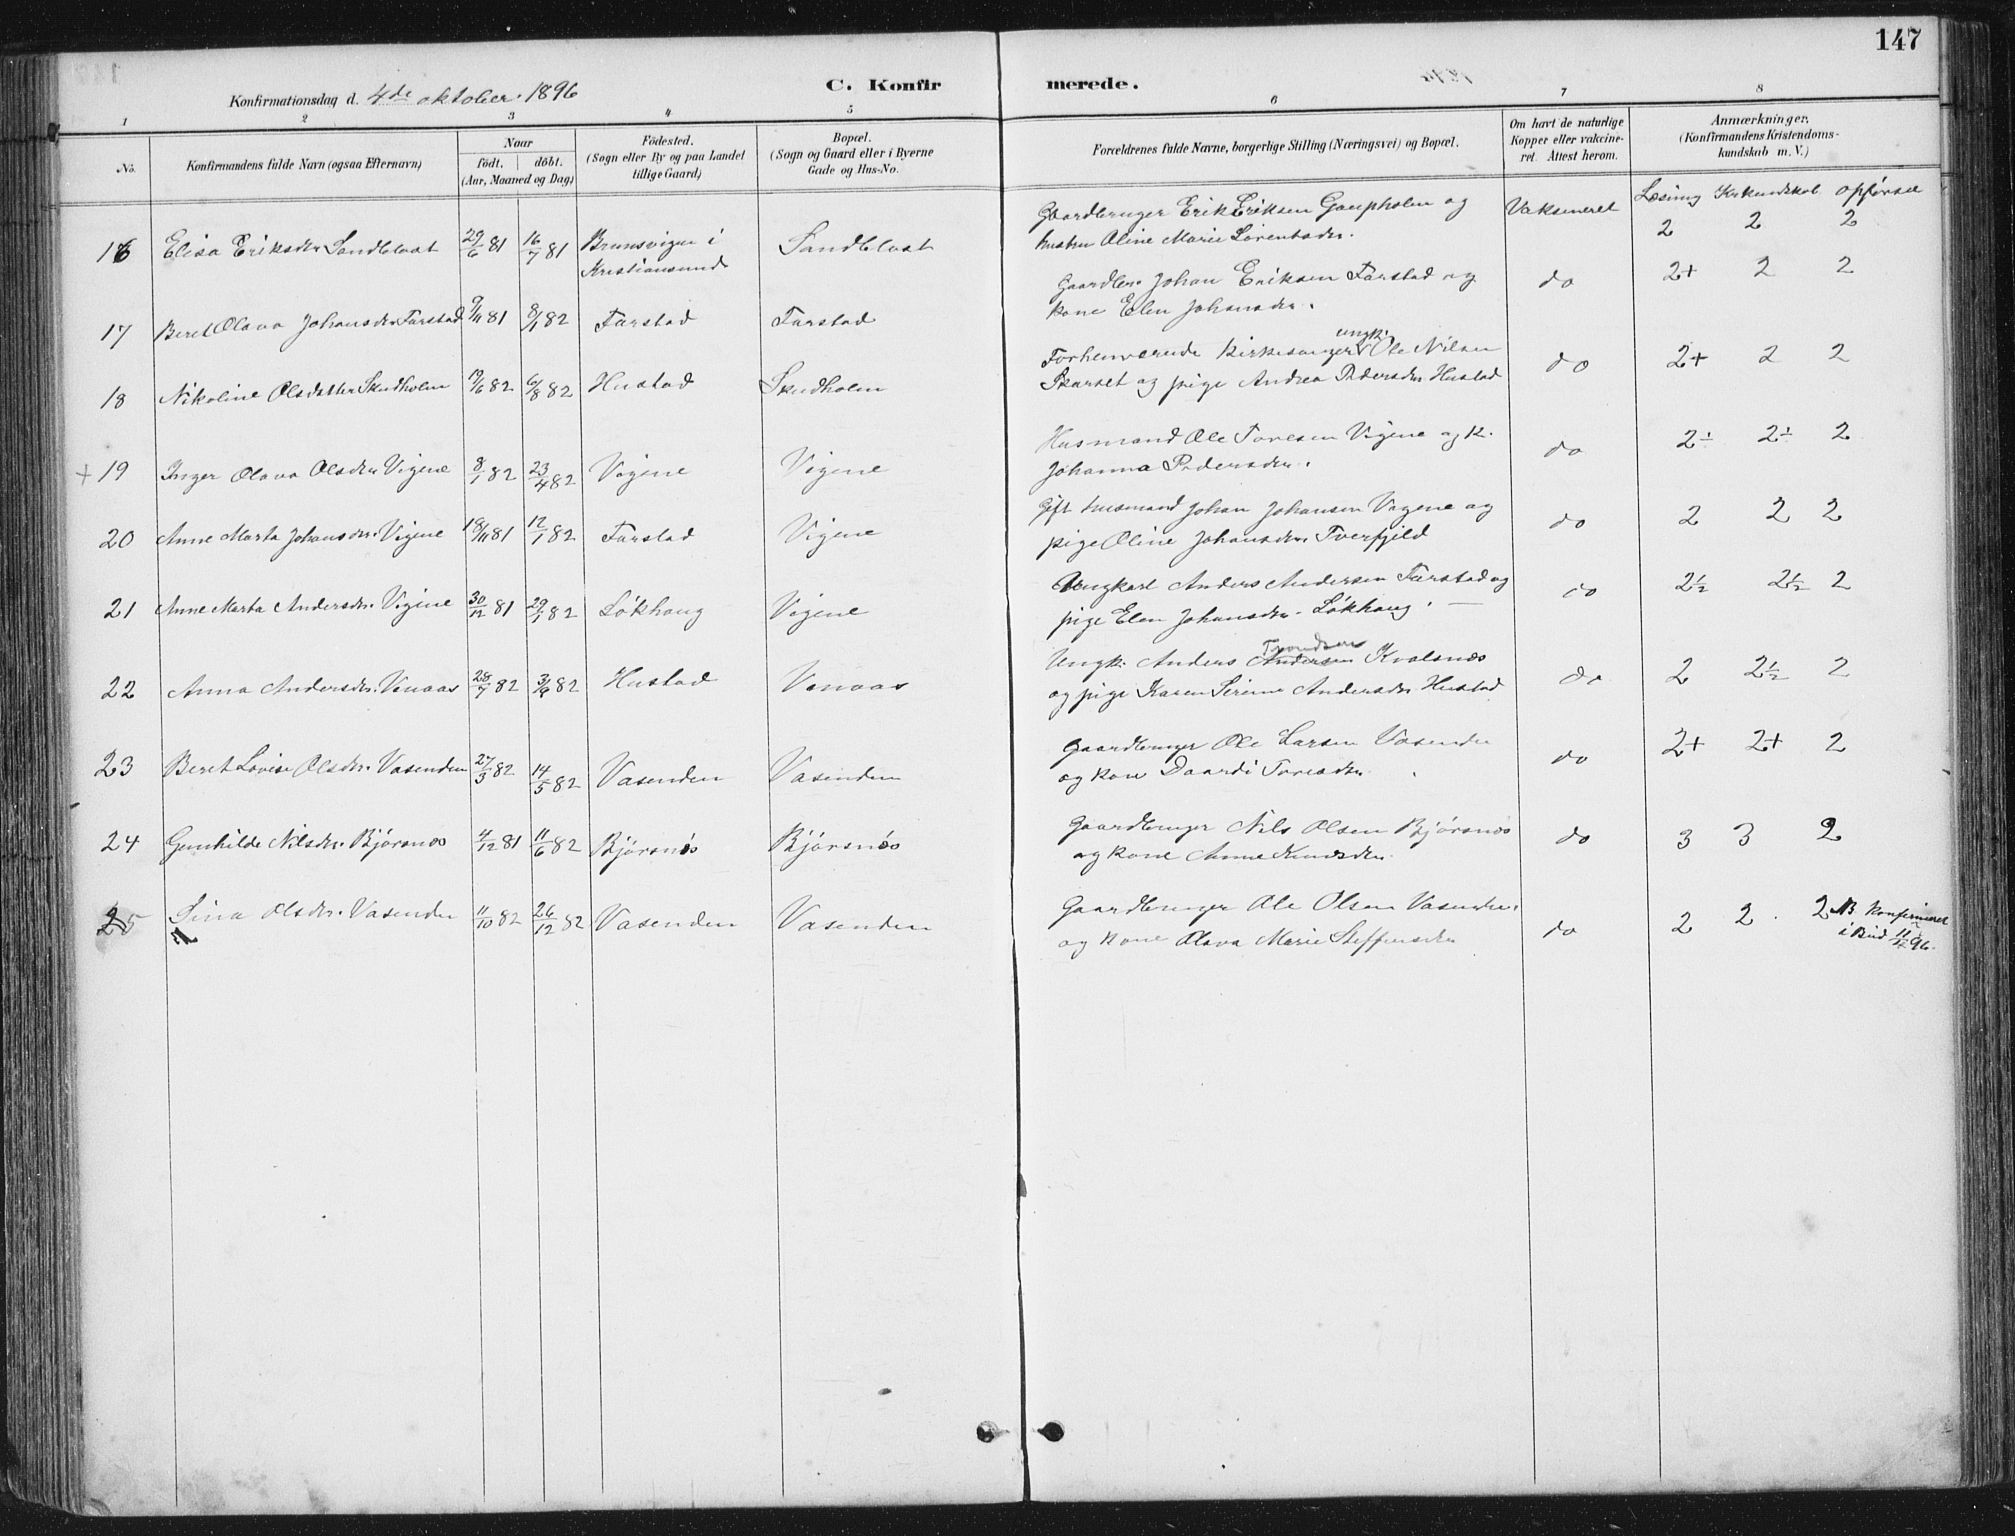 147
Konfirmationsdag d. 4de oktober 1896
C. Konfir merede.
1 2 3 4 5 6 7 8
No.
Konfirmandens fulde Navn (ogsaa Efternavn)
Naar
födt. döbt.
(Aar, Maaned og Dag)
Födested.
(Sogn eller By og paa Landet
tillige Gaard)
Bopæl.
(Sogn og Gaard eller i Byerne
Gade og Hus-No.
Forældrenes fulde Navne, borgerlige Stilling (Næringsvei) og Bopæl.
Om havt de naturlige
Kopper eller vakcine-
ret. Attest herom.
Anmærkninger.
(Konfirmandens Kristendoms-
kundskab m. V.)
Læsning Kr.kundskab opførsel
16 Elisa Eriksdtr Sandblaat 29/6 81 16/7 81 Brunsvigen i
Kristiansund Sandblaat
Gaardbruger Erik Eriksen Gaupholm og
hustru Oline Marie Lorentsdtr.
Vaksineret 2 2 2
17 Beret Olava Johansdtr Farstad 9/11 81 8/1 82 Farstad Farstad
Gaardbr. Johan Eriksen Farstad og
kone Elen Johansdtr.
do 2+ 2 2
18 Nikoline Olsdatter Skudholm 19/6 82 6/8 82 Hustad Skudholm
Forhenværende kirkesanger ungk. Ole Nilsen
Skarset og pige Andrea Pedersdtr Hustad
do 2+ 2 2
+ 19 Inger Olava Olsdtr Vigene 8/1 82 23/4 82 Vigene Vigene
Husmand Ole Toresen Vigene og k.
Johanna Pedersdtr.
do 2÷ 2÷ 2
20 Anne Marta Johansdtr. Vigene 18/11 81 12/1 82 Farstad Vigene
Gift husmand Johan Johansen Vigene og
pige Oline Johansdtr. Tverfjeld
do 2 2 2
21 Anne Marta Andersdtr. Vigene 30/12 81 29/1 82 Løkhaug Vigene
Ungkarl Anders Andersen Farstad og
pige Elen Johansdtr. Løkhaug.
do 2½ 2½ 2
22 Anna Andersdtr. Vanaas 28/7 82 3/9 82 Hustad Vanaas
Trondsen
Ungk. Anders Andersen Kvalsnæs
og pige Karen Serine Andersdtr Hustad
do 2 2½ 2
23 Beret Lovise Olsdtr. Vasenden 27/3 82 14/5 82 Vasenden Vasenden
Gaardbruger Ole Larsen Vasenden
og kone Daardi Toresdtr.
do 2+ 2+ 2
24 Gunhilde Nilsdtr. Bjørsnæs 4/12 81 11/6 82 Bjørsnæs Bjørsnæs
Gaardbruger Nils Olsen Bjørsnæs
og kone Anne Knudsdtr.
do 3 3 2
25 Sina Olsdtr. Vasenden 11/10 82 26/12 82 Vasenden Vasenden
Gaardbruger Ole Olsen Vasenden
og kone Olava Marie Steffensdtr
do 2 2 2 NB konfirmeret
i Bud 11/10 96.